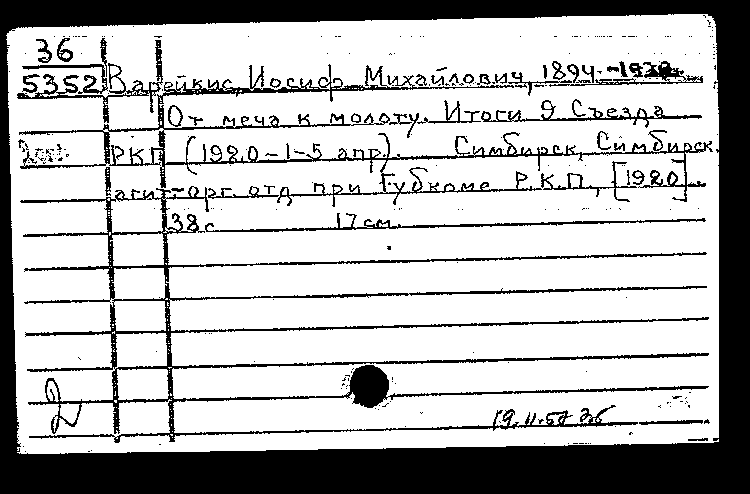 36
5352 Варейкис, Иосиф Михайлович, 1894-
От меча к молоту. Итоги 9 Съезда
РКП (1920-1-5 апр). Симбирск, Симбирск.
агит-орг. отд при Губкоме Р.К.П., [1920].
38с 17 см.
2
19.11.57